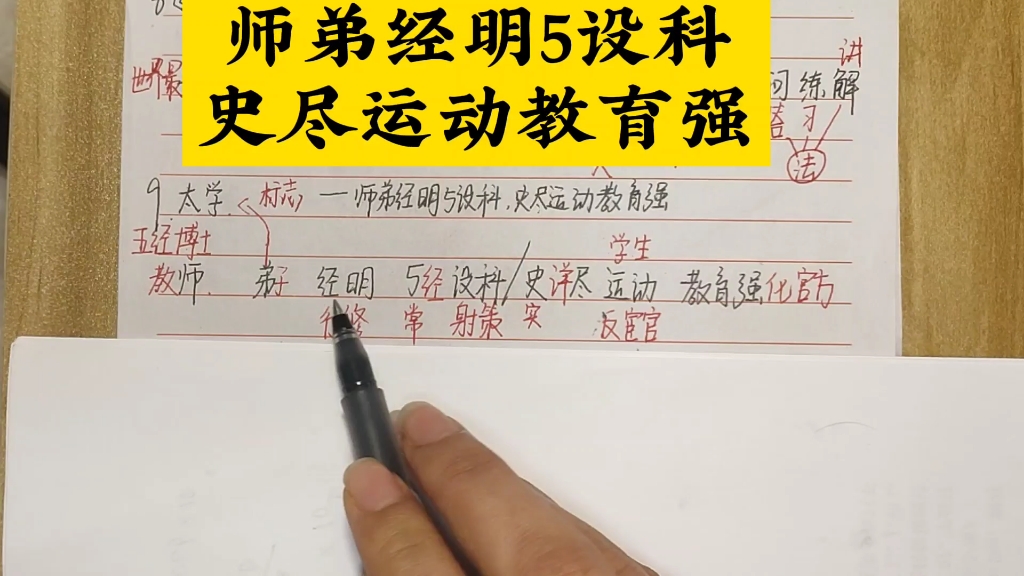 师弟经明5设科
史尽运动教育强
讲
世界最
问练解
习
法
9 太学 标志 一 师弟经明5设科,史尽运动教育强
五经博士 学生
教师. 弟子 经明 5经 设科/史详尽 运动 教育强化官方
常 射策 实 反宦官